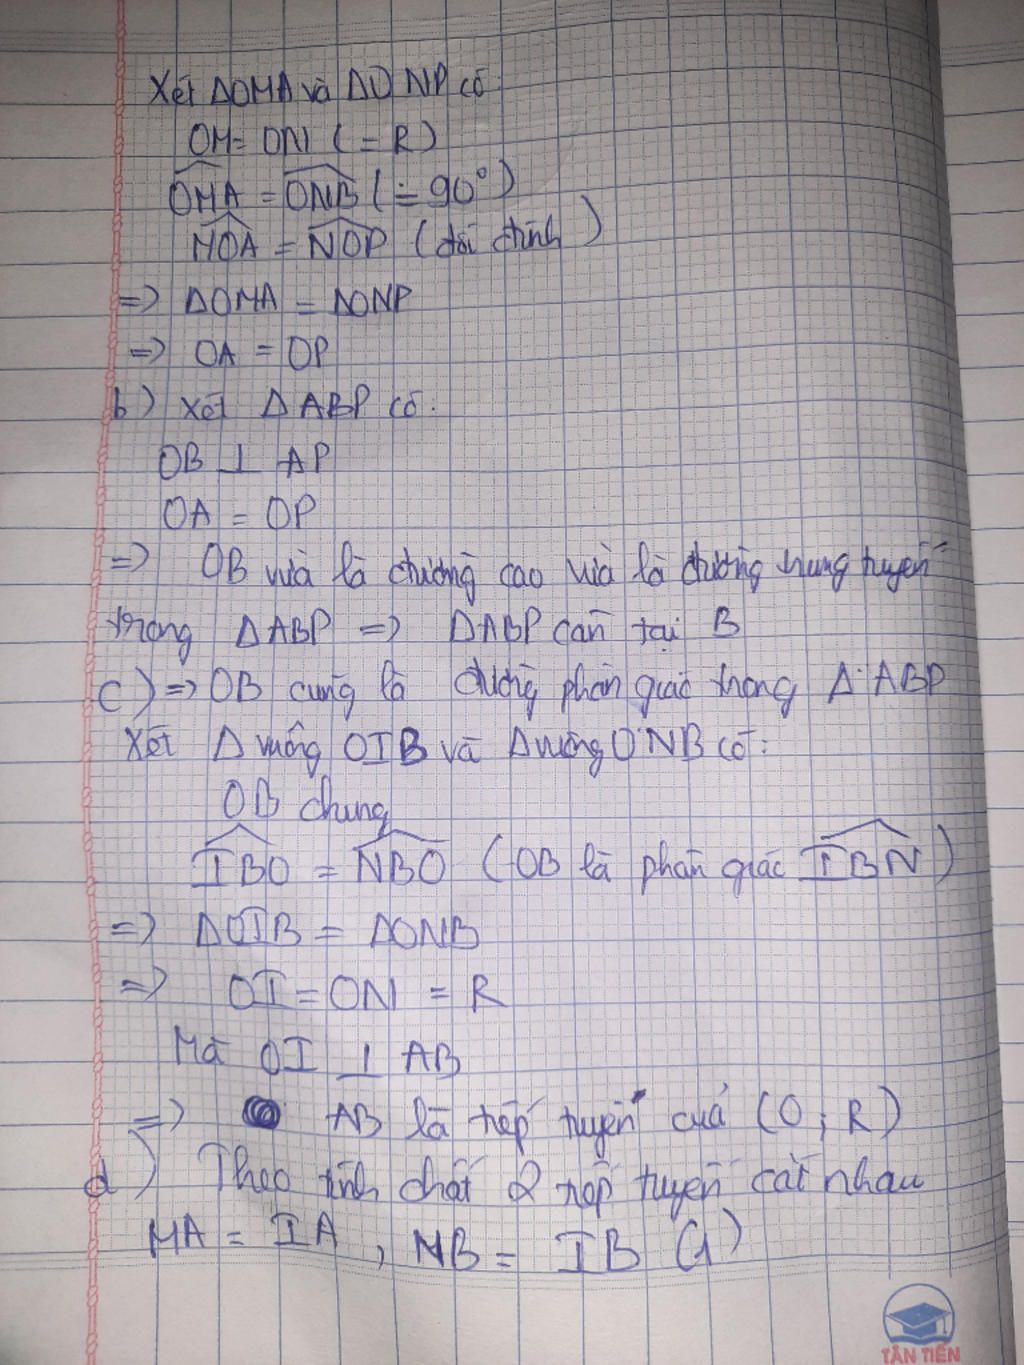 Xét ΔOMA và ΔONP có
OM = ON (= R)
OMA = ONB (= 90°)
MOA = NOP (đối đỉnh)
=> ΔOMA = ΔONP
=> OA = OP
b) Xét ΔABP có:
OB ⊥ AP
OA = OP
=> OB vừa là đường cao vừa là đường trung tuyến
trong ΔABP => ΔABP cân tại B
c) => OB cũng là đường phân giác trong ΔABP
Xét Δ vuông OIB và Δ vuông ONB có:
OB chung
IBO = NBO (OB là phân giác IBN)
=> ΔOIB = ΔONB
=> OI = ON = R
Mà OI ⊥ AB
=> AB là tiếp tuyến của (O; R)
d) Theo tính chất 2 tiếp tuyến cắt nhau
MA = IA, NB = IB (1)
TÂN TIẾN